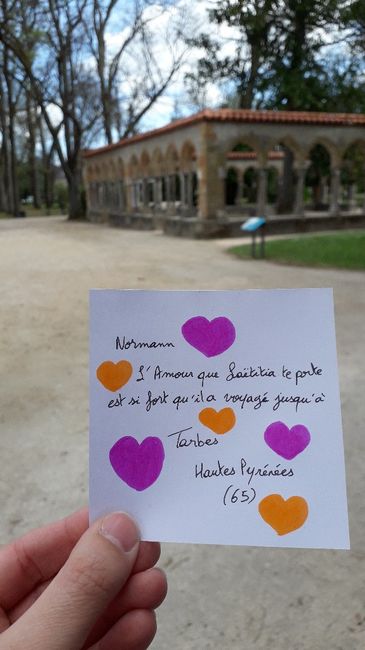 Normann
L'Amour que Laëtitia te porte
est si fort qu'il a voyagé jusqu'à
Tarbes
Hautes Pyrénées
(65)